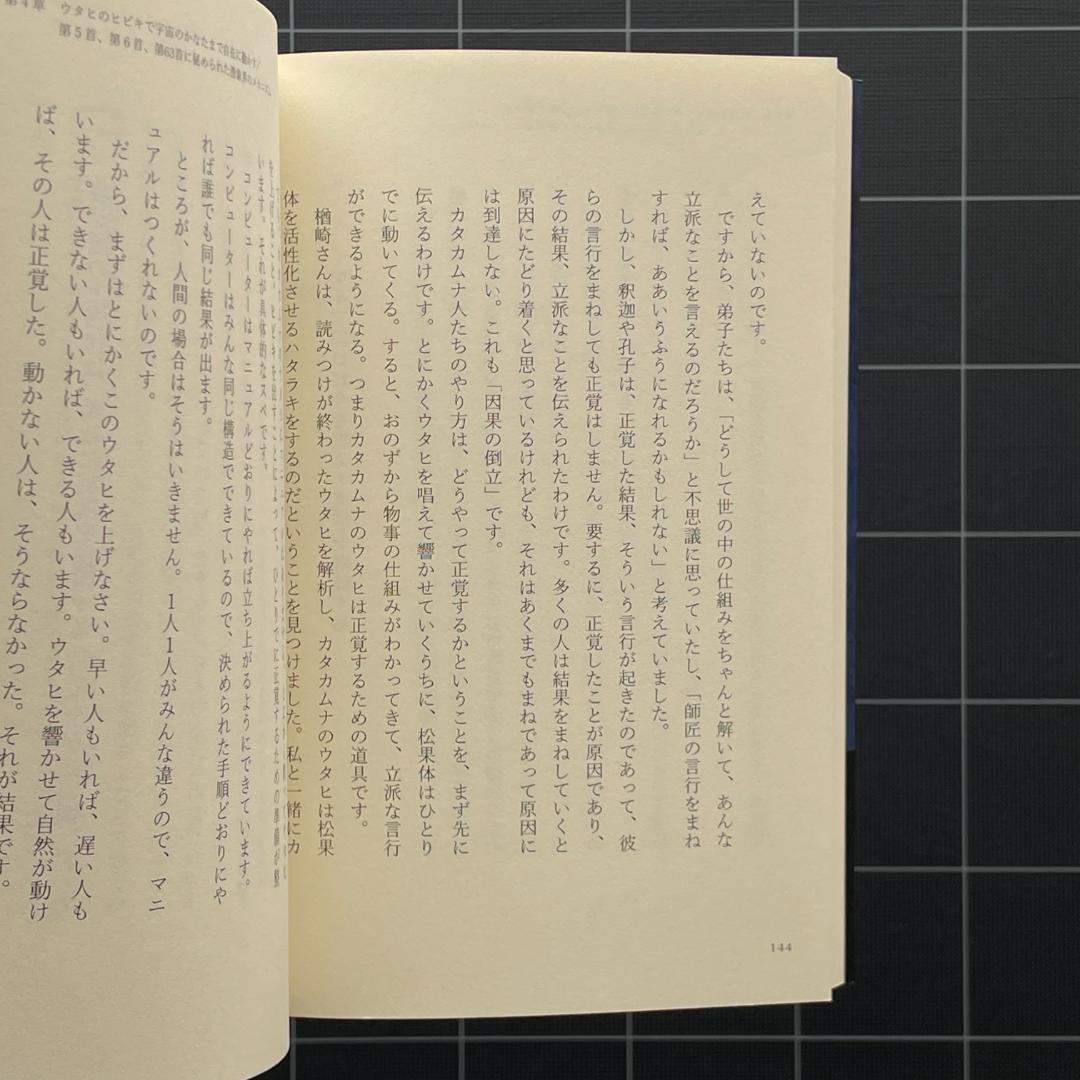 えていないのです。
ですから、弟子たちは、「どうして世の中の仕組みをちゃんと解いて、あんな
立派なことを言えるのだろうか」と不思議に思っていたし、「師匠の言行をまね
すれば、ああいうふうになれるかもしれない」と考えていました。
しかし、釈迦や孔子は、正覚した結果、そういう言行が起きたのであって、彼
らの言行をまねしても正覚はしません。要するに、正覚したことが原因であり、
その結果、立派なことを伝えられたわけです。多くの人は結果をまねしていくと
原因にたどり着くと思っているけれども、それはあくまでもまねであって原因に
は到達しない。これも「因果の倒立」です。
カタカムナ人たちのやり方は、どうやって正覚するかということを、まず先に
伝えるわけです。とにかくウタヒを唱えて響かせていくうちに、松果体はひとり
でに動いてくる。すると、おのずから物事の仕組みがわかってきて、立派な言行
ができるようになる。つまりカタカムナのウタヒは正覚するための道具です。
楢崎さんは、読みつけが終わったウタヒを解析し、カタカムナのウタヒは松果
体を活性化させるハタラキをするのだということを見つけました。私と一緒にカ
144
第4章　ウタヒのヒビキで宇宙のかなたまで自在に動かす/
第5首、第6首、第63首に秘められた潜象界のメカニズム
を上げること。ヒビキを出すことによって、ひとりでに正覚するための準備が整
います。それが具体的なスベです。
コンピューターはマニュアルどおりにやれば立ち上がるようにできています。
コンピューターはみんな同じ構造でできているので、決められた手順どおりにや
れば誰でも同じ結果が出ます。
ところが、人間の場合はそうはいきません。1人1人がみんな違うので、マニ
ュアルはつくれないのです。
だから、まずはとにかくこのウタヒを上げなさい。早い人もいれば、遅い人も
います。できない人もいれば、できる人もいます。ウタヒを響かせて自然が動け
ば、その人は正覚した。動かない人は、そうならなかった。それが結果です。